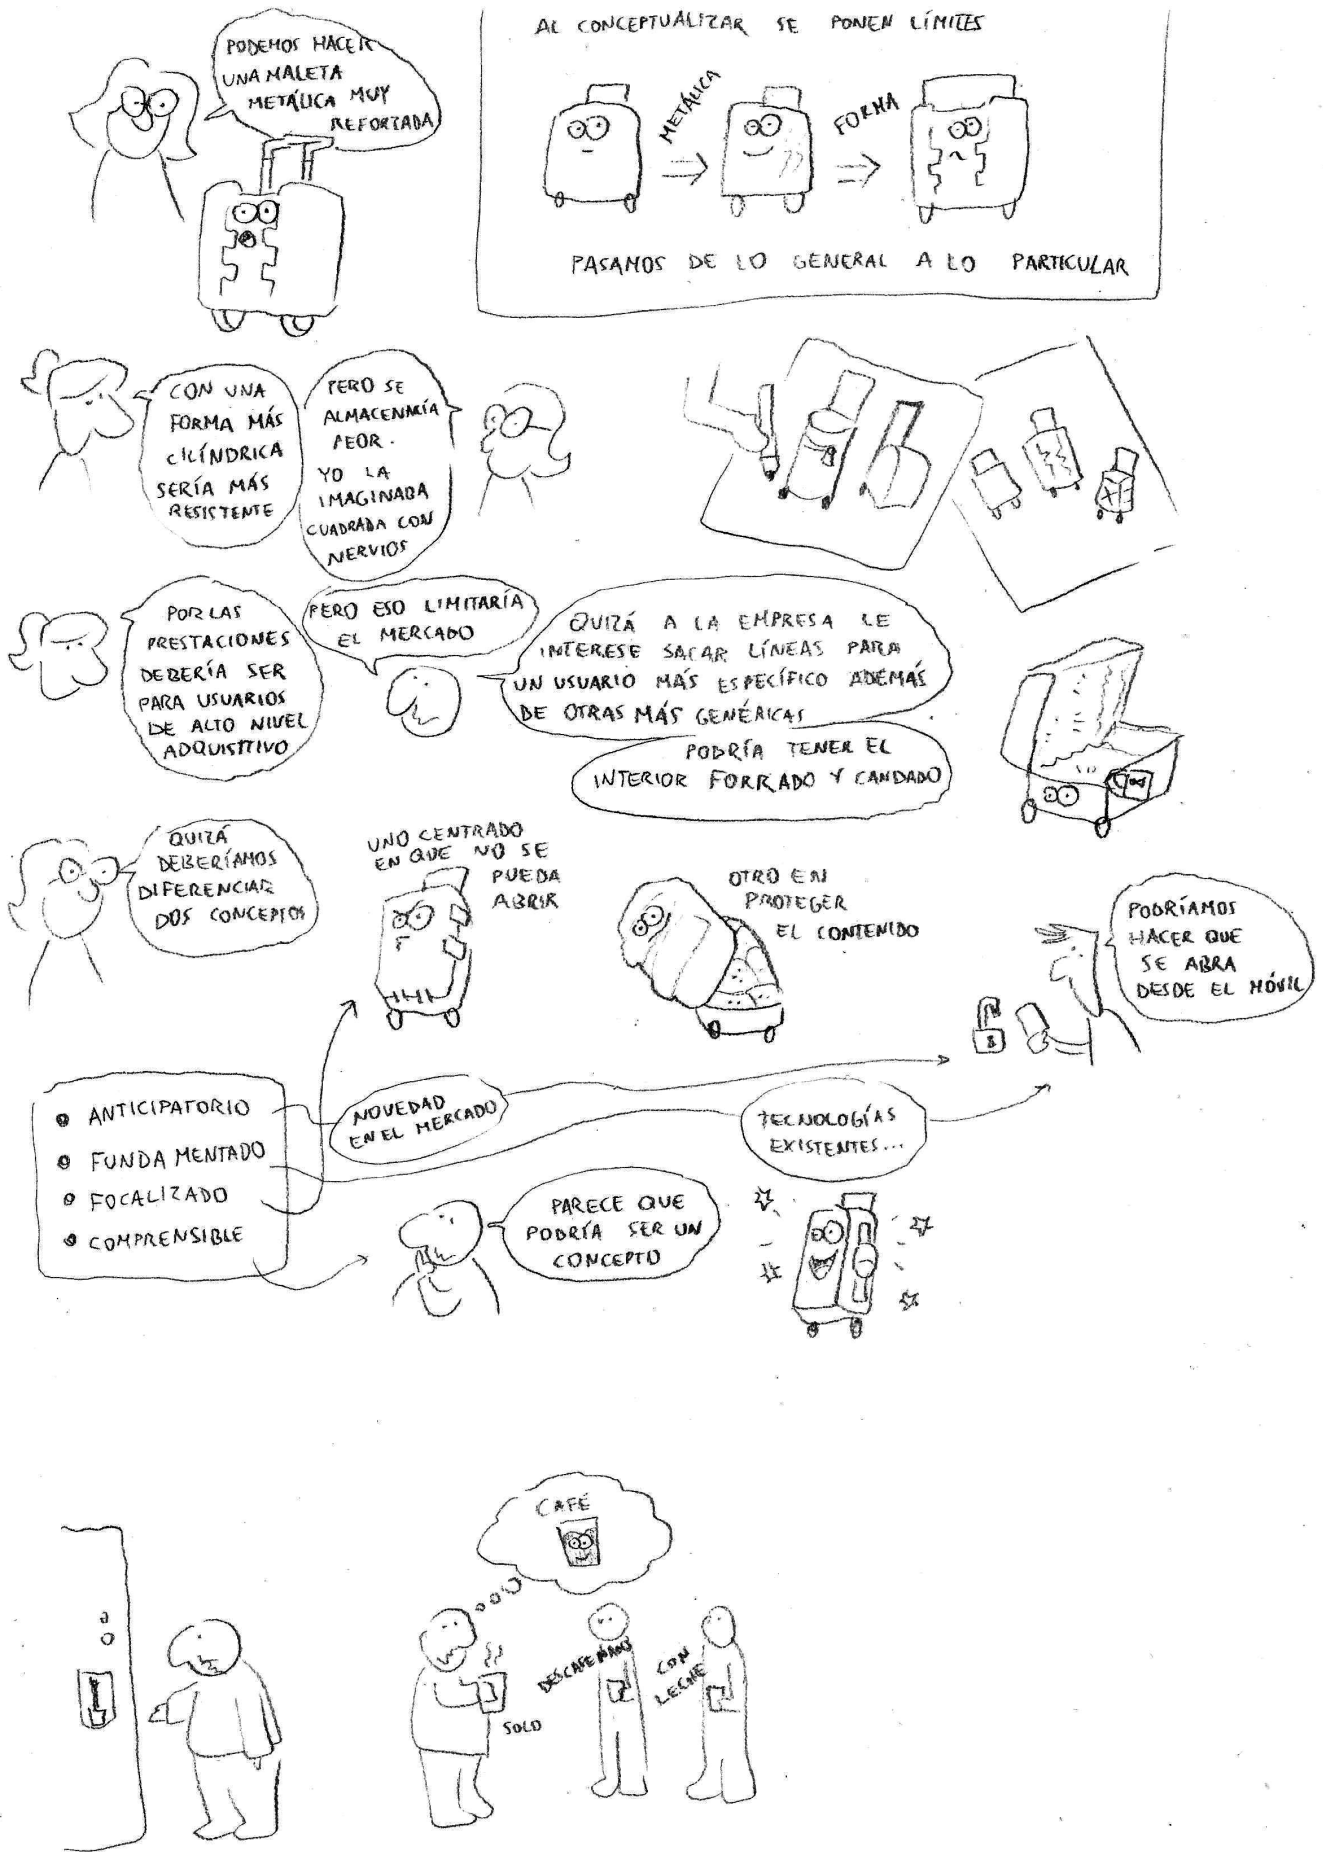 PODEMOS HACER
UNA MALETA
METÁLICA MUY
REFORZADA
AL CONCEPTUALIZAR SE PONEN LÍMITES
METÁLICA
FORMA
PASAMOS DE LO GENERAL A LO PARTICULAR
CON UNA
FORMA MÁS
CILÍNDRICA
SERÍA MÁS
RESISTENTE
PERO SE
ALMACENARÍA
PEOR.
YO LA
IMAGINABA
CUADRADA CON
NERVIOS
POR LAS
PRESTACIONES
DEBERÍA SER
PARA USUARIOS
DE ALTO NIVEL
ADQUISITIVO
PERO ESO LIMITARÍA
EL MERCADO
QUIZÁ A LA EMPRESA LE
INTERESE SACAR LÍNEAS PARA
UN USUARIO MÁS ESPECÍFICO ADEMÁS
DE OTRAS MÁS GENÉRICAS
PODRÍA TENER EL
INTERIOR FORRADO Y CANDADO
QUIZÁ
DEBERÍAMOS
DIFERENCIAR
DOS CONCEPTOS
UNO CENTRADO
EN QUE NO SE
PUEDA
ABRIR
OTRO EN
PROTEGER
EL CONTENIDO
PODRÍAMOS
HACER QUE
SE ABRA
DESDE EL MÓVIL
ANTICIPATORIO
FUNDAMENTADO
FOCALIZADO
COMPRENSIBLE
NOVEDAD
EN EL MERCADO
TECNOLOGÍAS
EXISTENTES...
PARECE QUE
PODRÍA SER UN
CONCEPTO
CAFÉ
SOLO
DESCAFEINADO
CON
LECHE